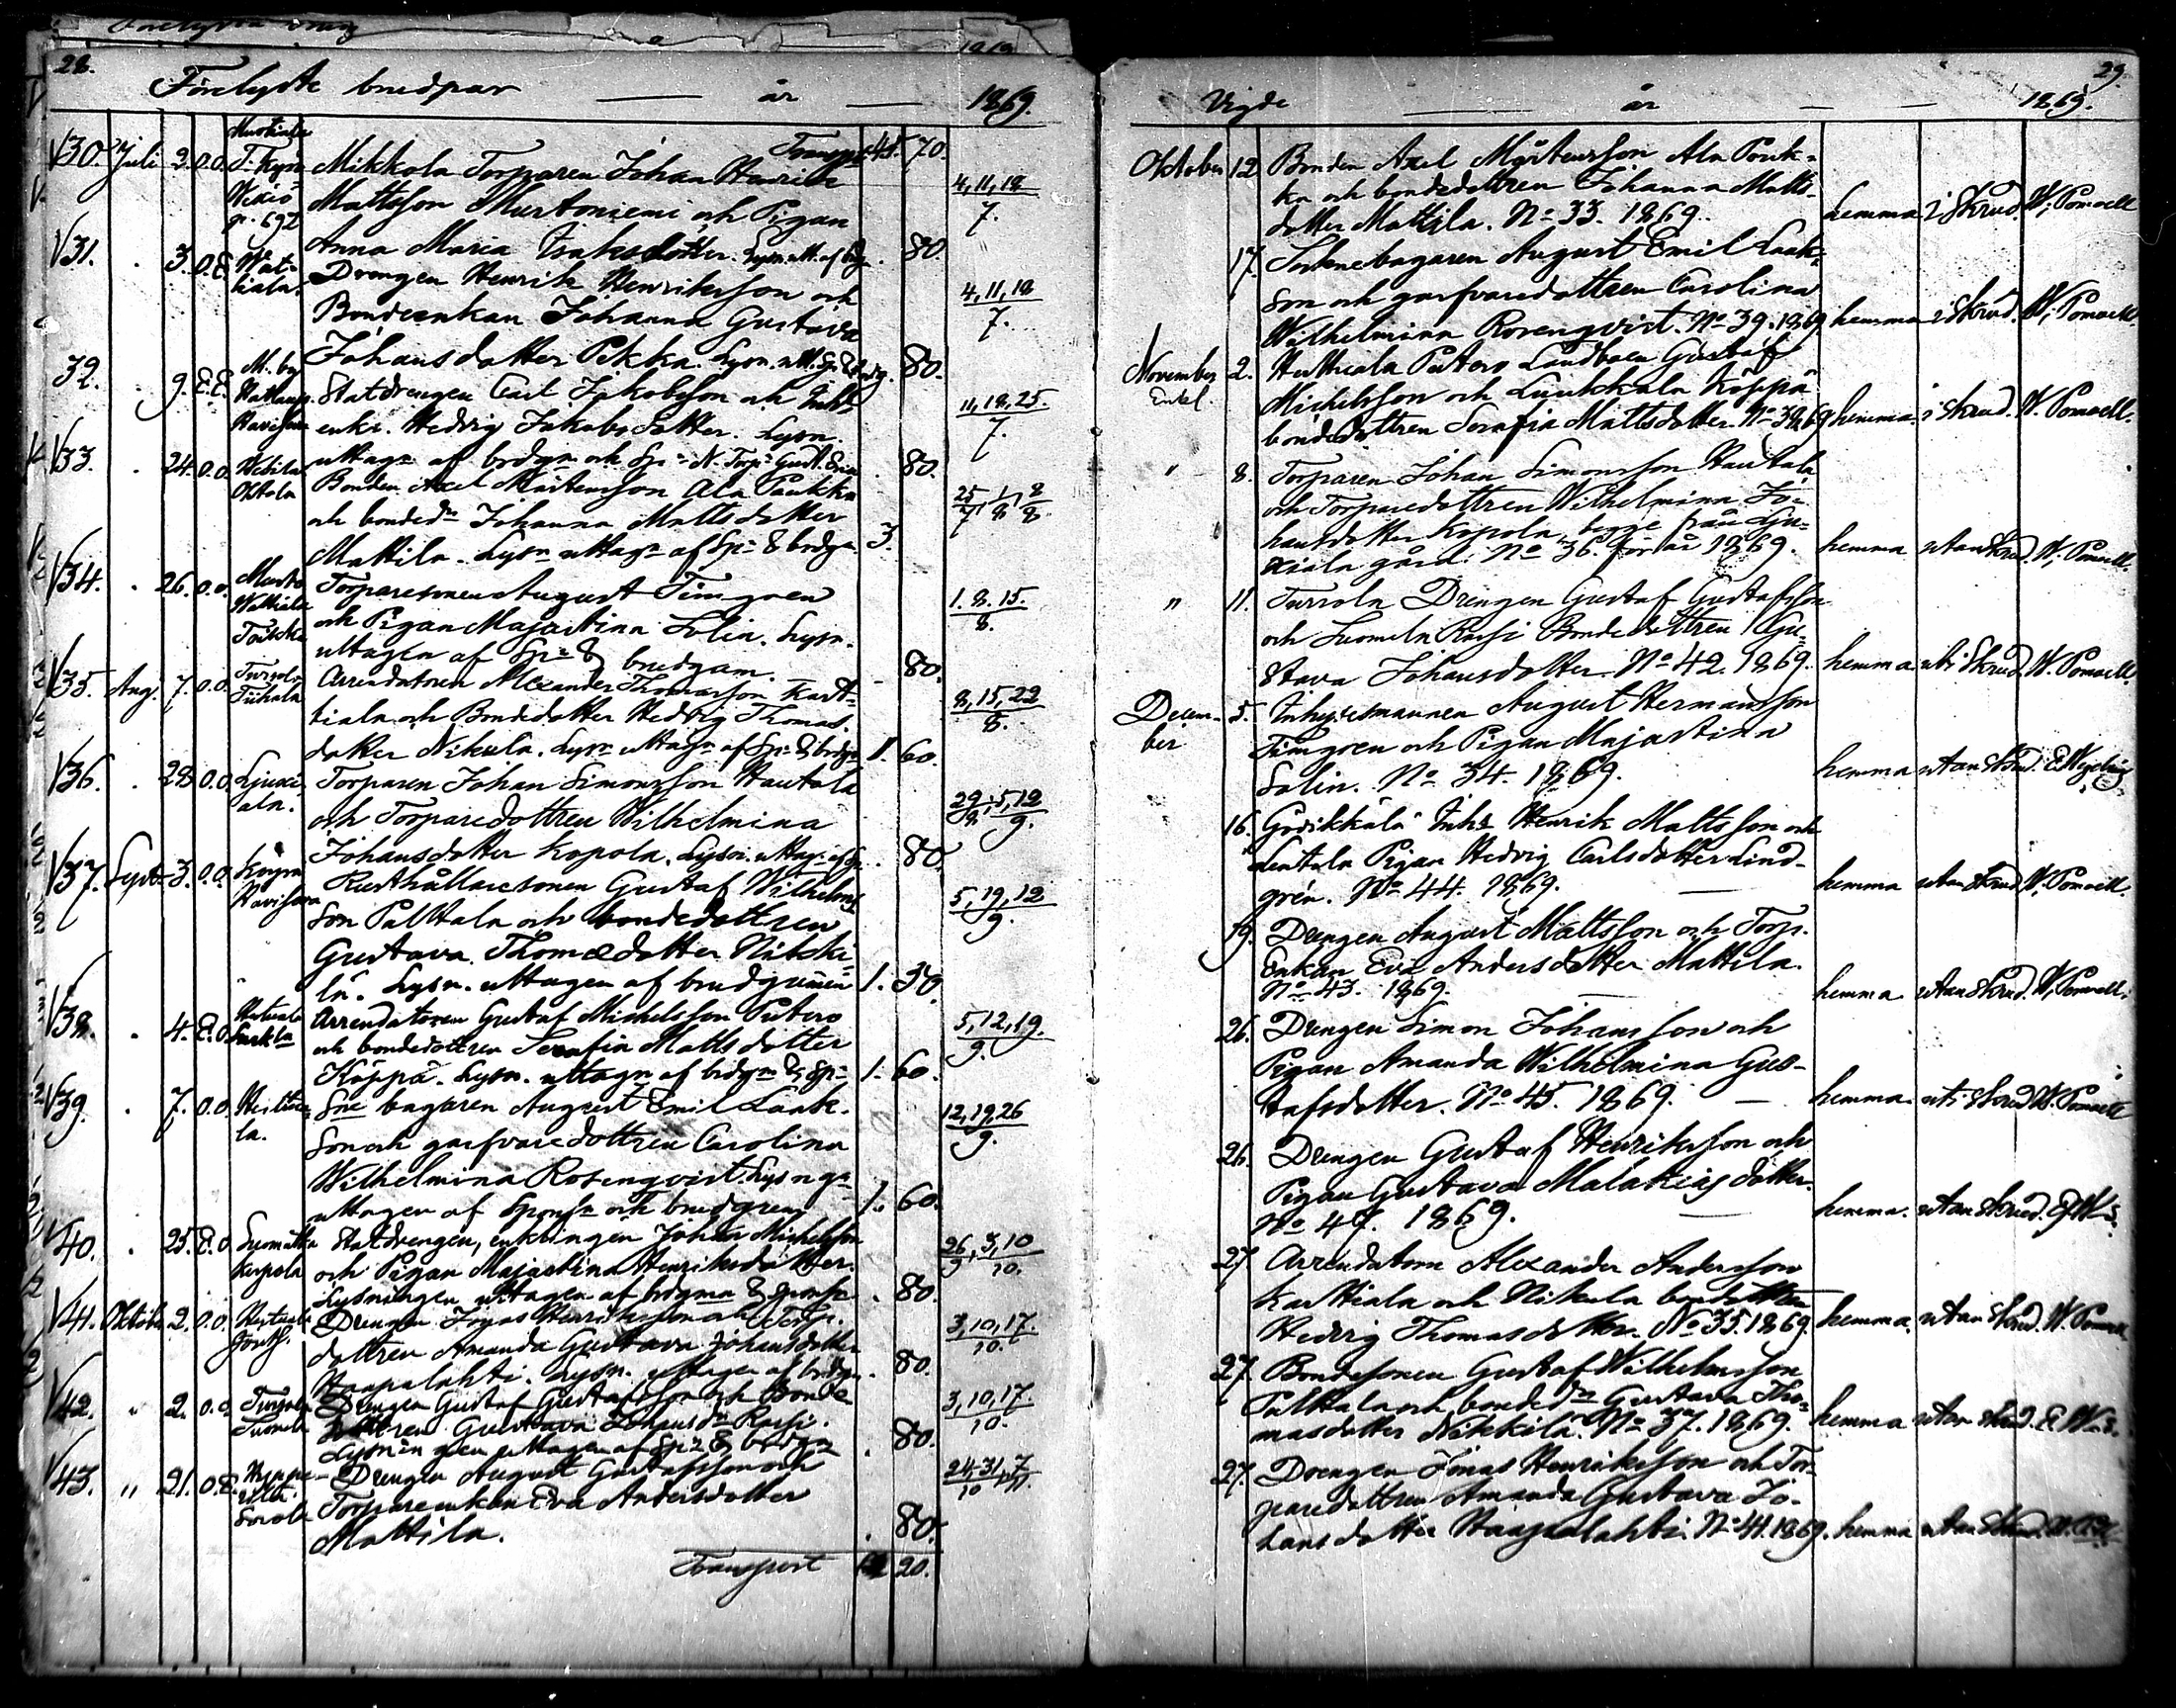 28.
Förelyste brudpar — år — 1869.
Transp. 45. 70.
V30. Juli 2. O.O. Mikkola Torparen Johan Henrik
Mattsson Murtoniemi och Pigan
Anna Maria Isaksdotter. Lysn. utt. af . 80.
4, 11, 18
7.
V31. . 3. O.E. Wat-
tiala. Drengen Henrik Henriksson och
Bondeenkan Johanna Gustava
Johansdotter Pekka. Lysn. utt. 80.
4, 11, 18
7.
32. . 9. E.E. Statdrengen Carl Jakobsson och Inh.
enka. Hedvig Jakobsdotter. Lysn.
uttagn af brdgm och . 80.
11, 18, 25.
7.
V33. . 24. O.O. Bonden Axel Mårtensson Ala Paukka
och bonded. Johanna Mattsdotter
Mattila. Lysn uttagn af Sp. & brdgm 3.
25/7, 1/8, 8/8.
V34. . 26. O.O. Torparesonen August Timgren
och Pigan Majastina Solin. Lysn.
uttagen af Sp. & brudgum. . 80.
1. 8. 15.
8.
V35. Aug. 7. O.O. Arrendatoren Alexander Thomasson Kart-
tiala och Bondedotter Hedvig Thomas
dotter Nikula. Lysn uttagn af Sp. & brdgm 1. 60.
8, 15, 22
8.
V36. . 28 O.O. Ljuxi-
ala. Torparen Johan Simonsson Hautala
och Torparedottren Wilhelmina
Johansdotter Kopola. Lysn. uttag. af . 80.
29/8, 5, 12
9.
V37. Sept. 3. O.O. Rusthållaresonen Gustaf Wilhelms
son Palttala och bondedottren
Gustava Thomasdotter Nikki-
lä. Lysn. uttagen af brudgummen 1. 30.
5, 19, 12
9.
V38. . 4. E.O. Arrendatoren Gustaf Michelsson Putero
och bondedottren Serafia Mattsdotter
Köppä. Lysn. uttagn af brdgm & Sp. 1. 60.
5, 12, 19.
9.
V39. . 7. O.O. bagaren August Emil Laak-
son och garfvaredottren Carolina
Wilhelmina Rosenqvist. Lysngn
uttagen af Sponsn och brudgmn 1. 60.
12, 19, 26
9.
V40. . 25. E.O. Statdrengen, enklingen Johan Michelsson
och Pigan Majastina Henriksdotter.
Lysningen uttagen af brdgmn & . 80.
26/9, 3, 10
10.
V41. Oktob. 2. O.O. Drengen Jonas Henriksson och Torp.
dottren Amanda Gustava Johansdotter
Haapalahti. Lysn. uttagen af brdgm. . 80.
3, 10, 17.
10.
V42. " 2. O.O. Drengen Gustaf Gustafsson och Bonde
dottren Gustava Johansdr Rassi.
Lysningen uttagen af Sp. & brdgm . 80.
3, 10, 17.
10.
V43. " 21. O.E. Drengen August Gustafsson och
Torpareenkan Eva Andersdotter
Mattila. . 80.
24, 31/10, 7/11.
Transport 20.
29.
Vigde år — 1869.
Oktober 12 Bonden Axel Mårtensson Ala Pauk-
ka och bondedottren Johanna Matts-
dotter Mattila. No 33. 1869. hemma i Skrud. W. Ponsell
17. bagaren August Emil Laak-
son och garfvaredottren Carolina
Wilhelmina Rosenqvist. No 39. 1869. hemma i Skrud. W. Ponsell.
November 2. Putero Landboen Gustaf
Enkl. Michelsson och Köppä
bondedottren Serafia Mattsdotter. No 38. 69 hemma. i skrud. W. Ponsell.
" 8. Torparen Johan Simonsson Hautala
och Torparedottren Wilhelmina Jo-
hansdotter Kopola, begge från Lju-
xiala gård. No 36. för år 1869. hemma utan Skrud. W. Ponsell.
" 11. Turrola Drengen Gustaf Gustafsson
och Suomela Rassi Bondedottren Gu-
stava Johansdotter. No 42. 1869. hemma uti Skrud. W. Ponsell.
Decem- 5. Inhysesmannen August Hermansson
ber Timgren och Pigan Majastina
Solin. No 34. 1869. hemma utan Skrud.
16. Inhs Henrik Mattsson och
Lentula Pigan Hedvig Carlsdotter Lind-
grén. No 44. 1869. — hemma utan skrud. W. Ponsell.
19. Drengen August Mattsson och Torp.
Enkan Eva Andersdotter Mattila.
No 43. 1869. hemma utan Skrud. W. Ponsell.
26. Drengen Simon Johansson och
Pigan Amanda Wilhelmina Gus-
tafsdotter. No 45. 1869. — hemma. uti skrud W. Ponsell
26. Drengen Gustaf Henriksson och
Pigan Gustava Malakiasdotter.
No 47. 1869. — hemma. utan skrud.
27. Arrendatorn Alexander Andersson
Karttiala och Nikula
Hedvig Thomasdotter. No 35. 1869. hemma. utan skrud. W. Ponsell
27. Bondesonen Gustaf Wilhelmsson
Palttala och bondedr Gustava Tho-
masdotter Nikkilä. No 37. 1869. hemma utan skrud.
27. Drengen Jonas Henriksson och Tor-
paredottren Amanda Gustava Jo-
hansdotter Haapalahti. No 41. 1869. hemma utan Skrud.